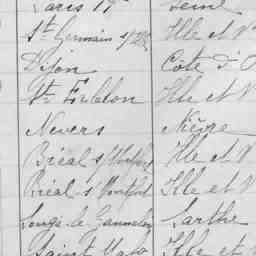 Paris 17e Seine
St Germain s/Ille Ille et V
Dijon Côte d'O
St Erblon Ille et V
Nevers Nièvre
Bréal s/Montfort Ille et V
Bréal s/ Montfort Ille et V
Sougé-le-Gannelon Sarthe
Saint Malo Ille et V